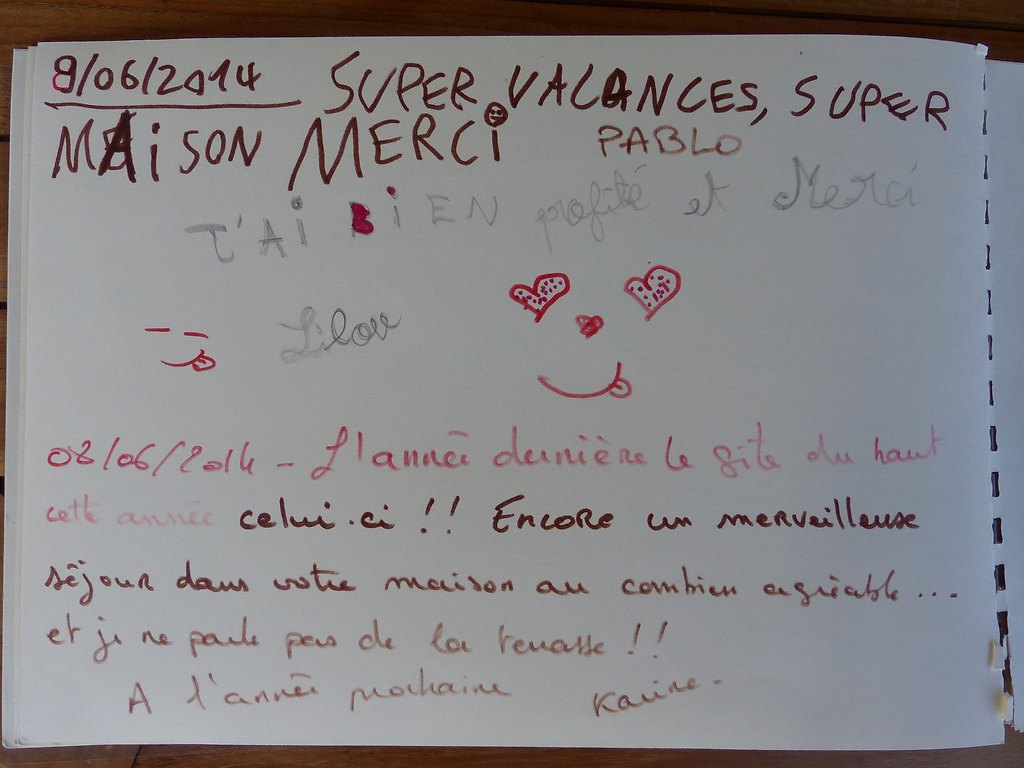 8/06/2014 SUPER VACANCES, SUPER
MAiSON MERCi PABLO
J'Ai BiEN profité et Merci
Lilou
08/06/2014 - L'année dernière le gîte du haut
cette année celui-ci !! Encore un merveilleuse
séjour dans votre maison au combien agréable...
et je ne parle pas de la terrasse !!
A l'année prochaine Karine.